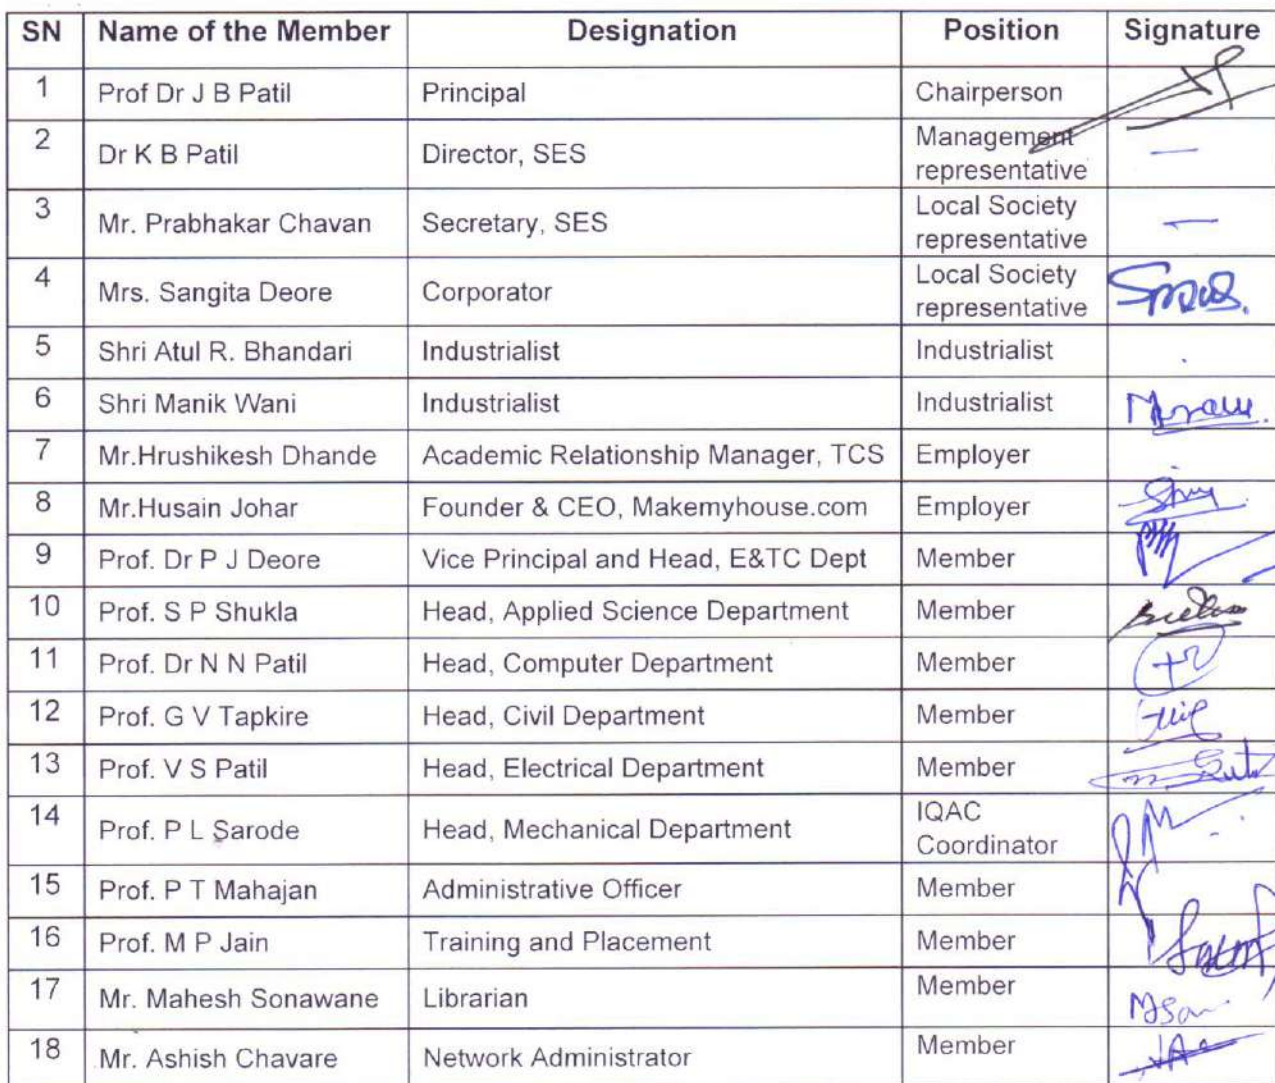 SN Name of the Member Designation Position Signature
1 Prof Dr J B Patil Principal Chairperson
2 Dr K B Patil Director, SES Management
representative
3 Mr. Prabhakar Chavan Secretary, SES Local Society
representative
4 Mrs. Sangita Deore Corporator Local Society
representative
5 Shri Atul R. Bhandari Industrialist Industrialist
6 Shri Manik Wani Industrialist Industrialist
7 Mr.Hrushikesh Dhande Academic Relationship Manager, TCS Employer
8 Mr.Husain Johar Founder & CEO, Makemyhouse.com Employer
9 Prof. Dr P J Deore Vice Principal and Head, E&TC Dept Member
10 Prof. S P Shukla Head, Applied Science Department Member
11 Prof. Dr N N Patil Head, Computer Department Member
12 Prof. G V Tapkire Head, Civil Department Member
13 Prof. V S Patil Head, Electrical Department Member
14 Prof. P L Sarode Head, Mechanical Department IQAC
Coordinator
15 Prof. P T Mahajan Administrative Officer Member
16 Prof. M P Jain Training and Placement Member
17 Mr. Mahesh Sonawane Librarian Member
18 Mr. Ashish Chavare Network Administrator Member